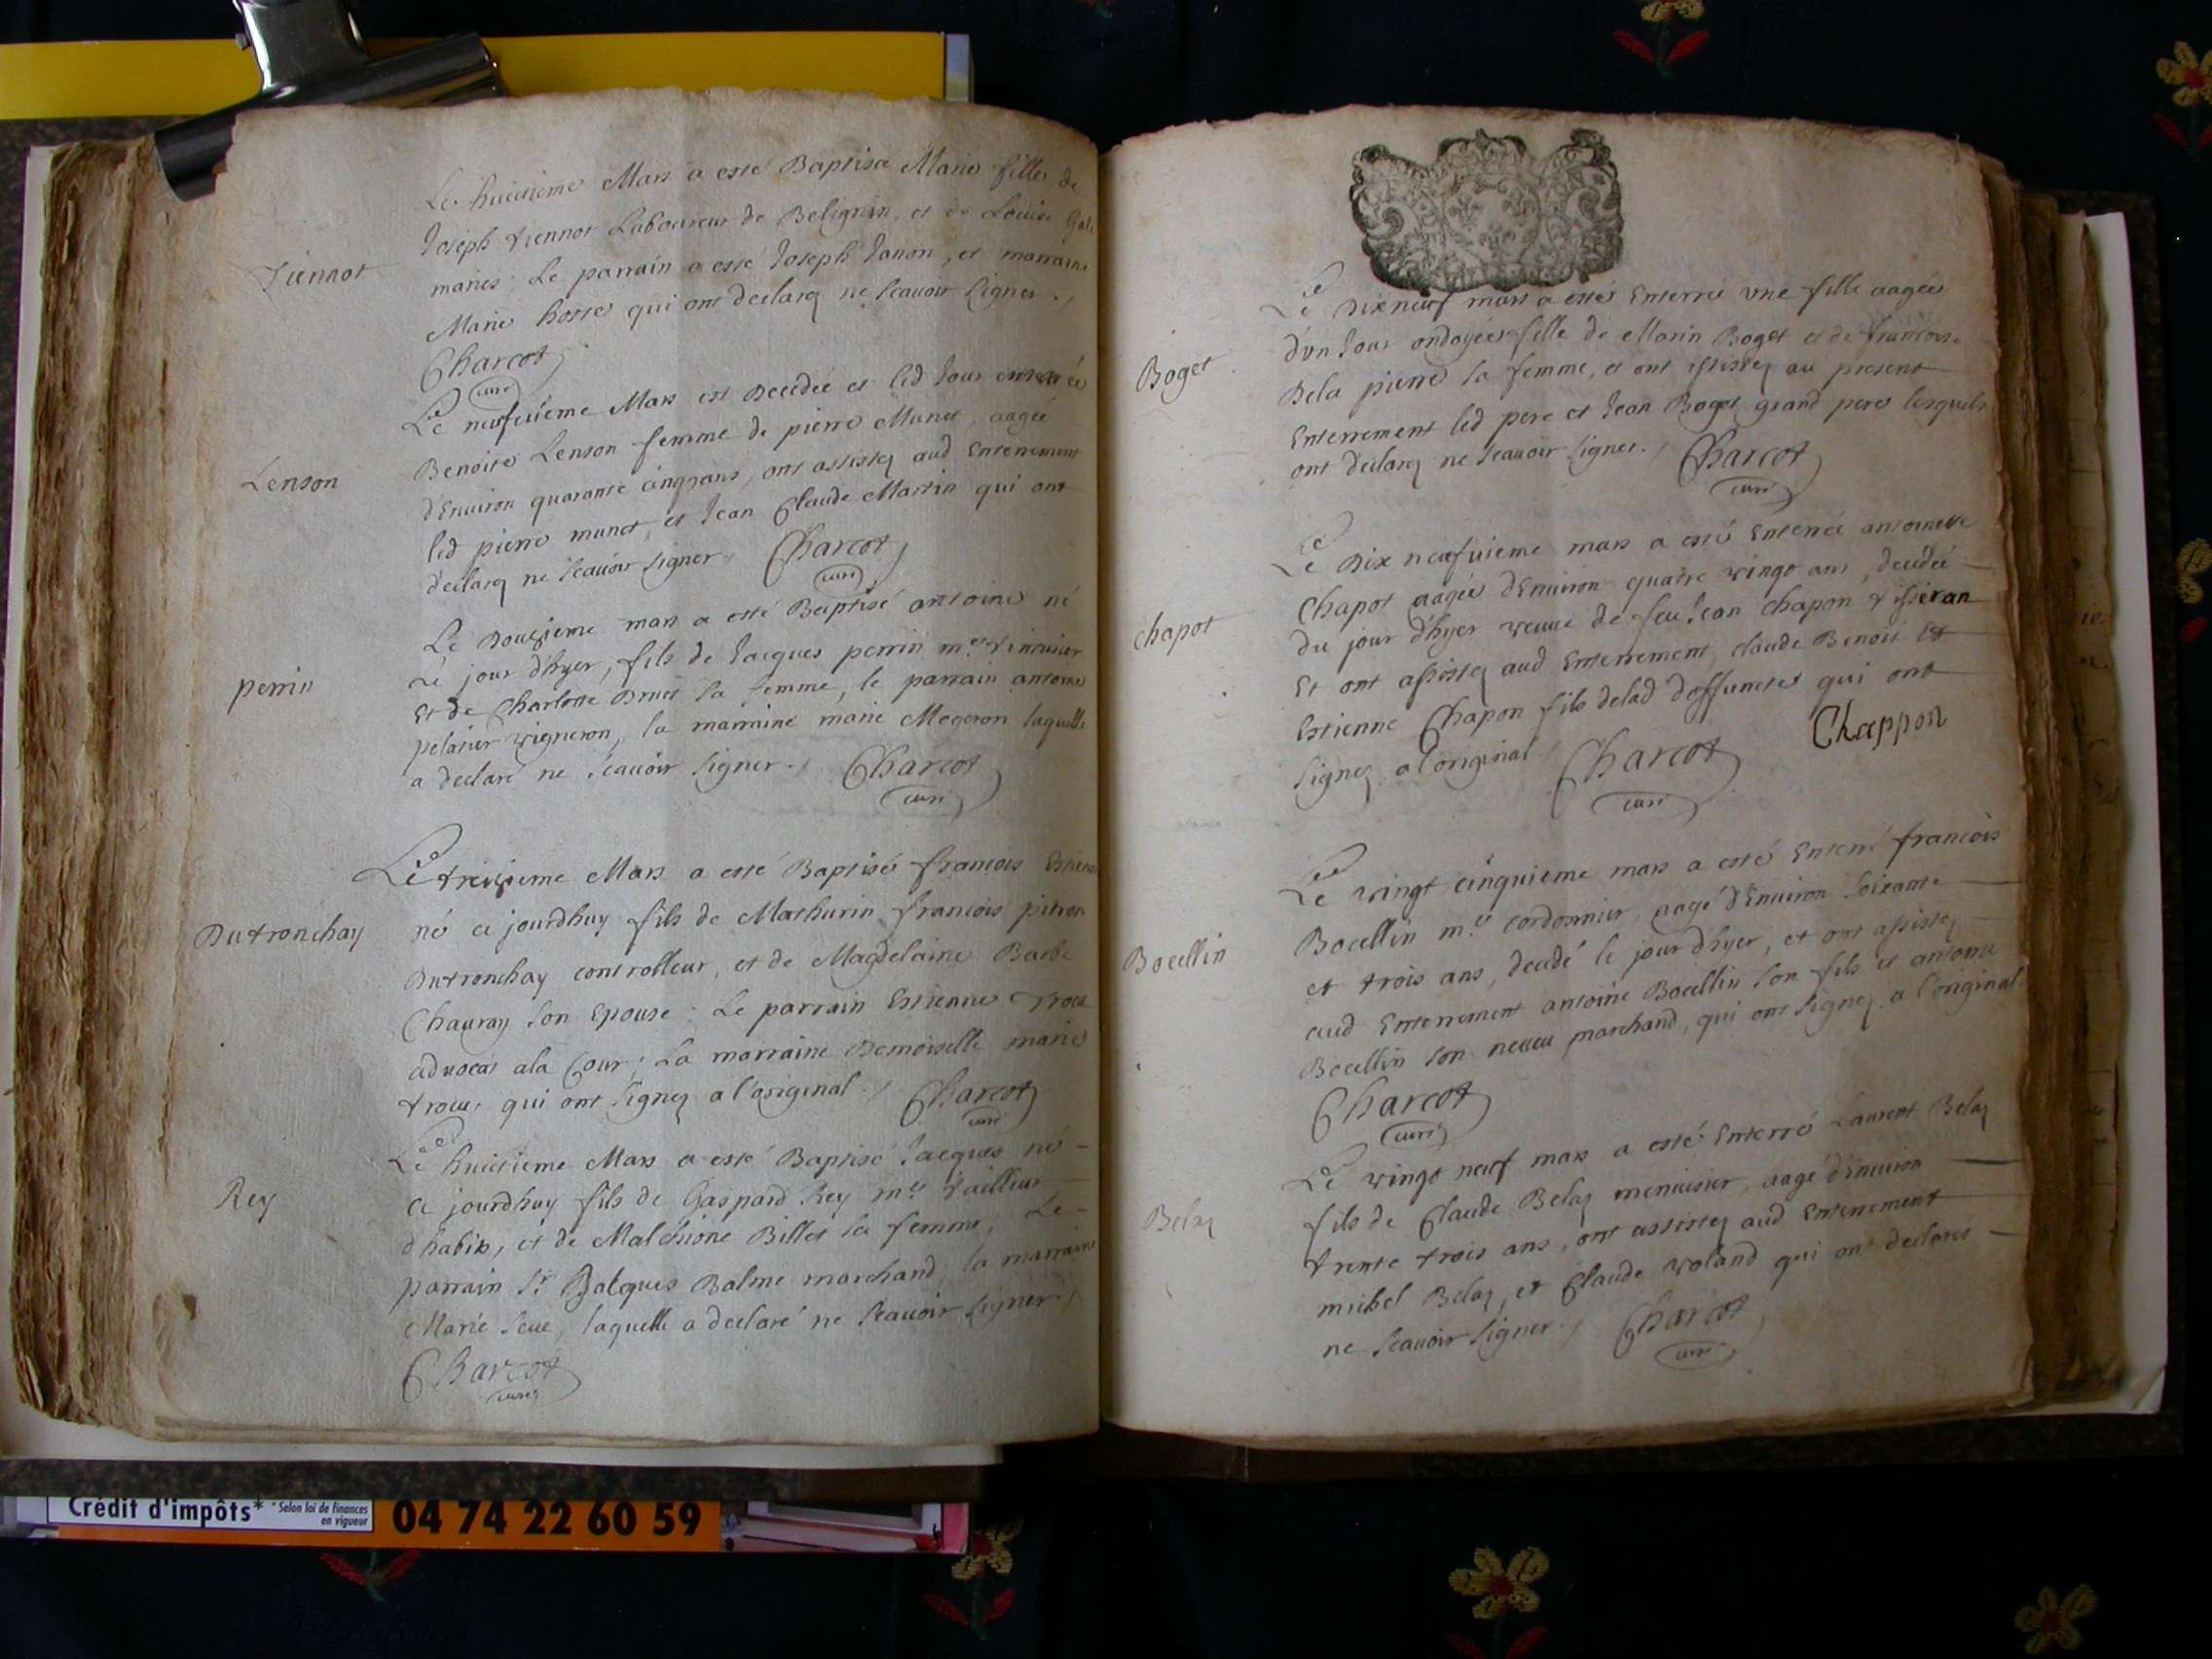 Le huictieme Mars a esté Baptisée Marie fille de
Joseph tiennot Laboureur de Belignin, et de Louise
mariés; Le parrain a esté Joseph Janon, et marraine
Marie hoste qui ont declarez ne scauoir signer./
Tiennot
Charcot
curé
Le neufuieme Mars est Decedée et led jour enterrée
Benoite Lenson femme de pierre Munet, aagée
d'Enuiron quarante cinq ans, ont assistez aud Enterrement
led pierre munet, et Jean Claude Martin qui ont
declarez ne scauoir signer./ Charcot
curé
Lenson
Le Douzieme mars a esté Baptisé antoine né
Le jour d'hyer, fils de Jacques perrin m.e
Et de Charlotte Druet sa femme, le parrain antoine
pelatier vigneron, la marraine marie Mogeron laquelle
a declaré ne scauoir signer./ Charcot
curé
perrin
Le treizieme Mars a esté Baptisé francois Estienne
né ce jourdhuy fils de Mathurin francois pitron
Dutronchay controlleur, et de Magdelaine Barbe
Chauray son Epouse: Le parrain Estienne
aduocat ala Cour; La marraine Demoiselle marie
qui ont signez a l'original./ Charcot
curé
Dutronchay
Le huictieme Mars a esté Baptisé Jacques né
ce jourdhuy fils de Gaspard Rey m.e tailleur
d'habits, et de Malchione Billet sa femme, Le
parrain S.r Jacques Balme marchand, la marraine
Marie Seue, laquelle a declaré ne scauoir signer./
Rey
Charcot
curé
Le Dix neuf mars a esté Enterrée une fille aagée
d'vn Jour ondoyée fille de Marin Boget et de francoise
Dela pierre sa femme, et ont assistez au present
Enterrement led pere et Jean Boget grand pere lesquels
ont declarez ne scauoir signer./ Charcot
curé
Boget
Le Dix neufuieme mars a esté Enterrée antoinette
Chapot aagée d'Enuiron quatre vingt ans, decedée
du jour d'hyer veuue de feu Jean Chapon tisseran
Et ont assistez aud Enterrement, claude Benoit Et
Estienne Chapon fils delad deffuncte qui ont
signez a l'original./ Charcot Chappon
curé
Chapot
Le vingt cinquieme mars a esté Enterré francois
Bocellin m.e cordonnier, aagé d'Enuiron soixante
et trois ans, decedé le jour d'hyer, et ont assistez
aud Enterrement antoine Bocellin son fils et antoine
Bocellin son neueu marchand, qui ont signez a l'original.
Bocellin
Charcot
curé
Le vingt neuf mars a esté Enterré Laurent Belay
fils de Claude Belay menuisier, aagé d'Enuiron
trente trois ans, ont assistez aud Enterrement
michel Belay, et Claude voland qui ont declarés
ne scauoir signer./ Charcot
curé
Belay
Crédit d'impôts* *Selon loi de finances
en vigueur
04 74 22 60 59